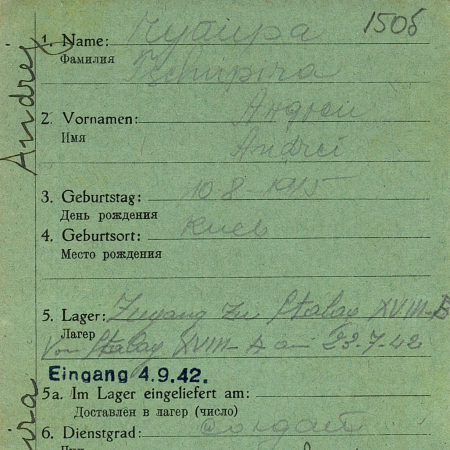 150б
1. Name: Чупира
Фамилия Tschupira
2. Vornamen: Андреи
Имя Andrei
3. Geburtstag: 10 8 1915
День рождения
4. Geburtsort: Киев
Место рождения
5. Lager: Zugang zu Stalag XVIII-B
Лагер
Von Stalag XVIII-A am 23.7.42
Eingang 4.9.42.
5a. Im Lager eingeliefert am:
Доставлен в лагер (число)
6. Dienstgrad: Солдат
Andrej
ira